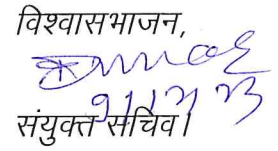 विश्वासभाजन,
संयुक्त सचिव।